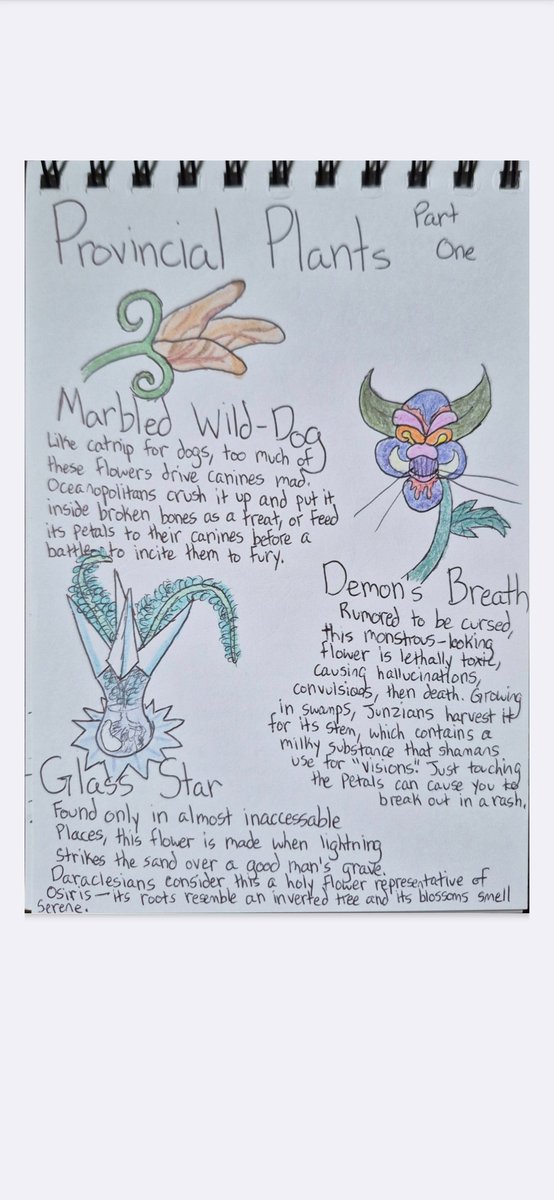 Provincial Plants Part One
Marbled Wild-Dog
Like catnip for dogs, too much of
these flowers drive canines mad.
Oceanopolitans crush it up and put it
inside broken bones as a treat, or feed
its petals to their canines before a
battle to incite them to fury.
Demon's Breath
Rumored to be cursed,
this monstrous-looking
flower is lethally toxic,
causing hallucinations,
convulsions, then death. Growing
in swamps, Junzians harvest it
for its stem, which contains a
milky substance that shamans
use for "visions." Just touching
the petals can cause you to
break out in a rash.
Glass Star
Found only in almost inaccessable
Places, this flower is made when lightning
strikes the sand over a good man's grave.
Daraclesians consider this a holy flower representative of
Osiris—its roots resemble an inverted tree and its blossoms smell
serene.